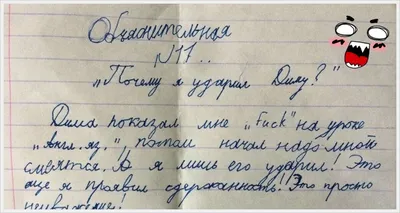 Объяснительная
N11..
„Почему я ударил Диму?"
Дима показал мне „Fuck" на уроке
„Англ. яз.", потом начал надо мной
смеятся. А я лишь его ударил! Это
еще я проявил сдержанность! Это просто
неуважение!